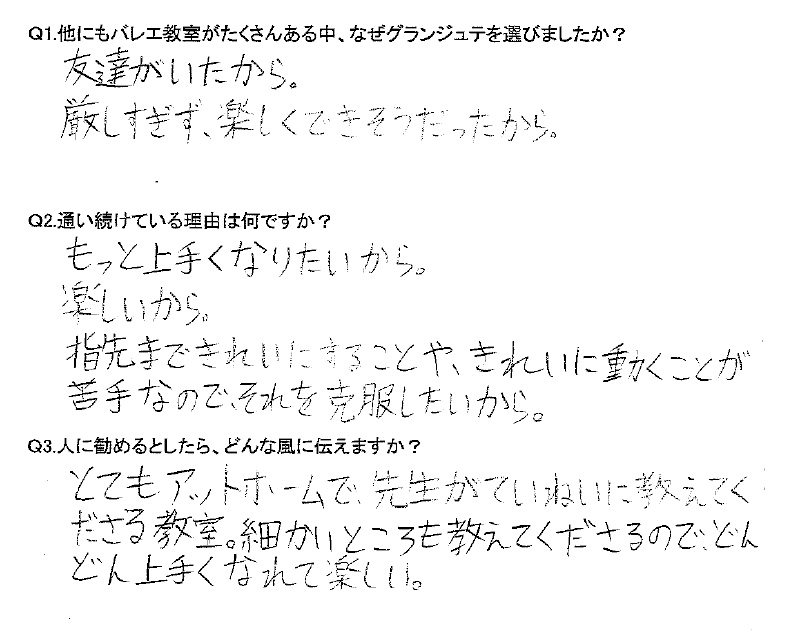 Q1.他にもバレエ教室がたくさんある中、なぜグランジュテを選びましたか？
友達がいたから。
厳しすぎず、楽しくできそうだったから。
Q2.通い続けている理由は何ですか？
もっと上手くなりたいから。
楽しいから。
指先まできれいにすることや、きれいに動くことが
苦手なので、それを克服したいから。
Q3.人に勧めるとしたら、どんな風に伝えますか？
とてもアットホームで、先生がていねいに教えてく
ださる教室。細かいところも教えてくださるので、どん
どん上手くなれて楽しい。